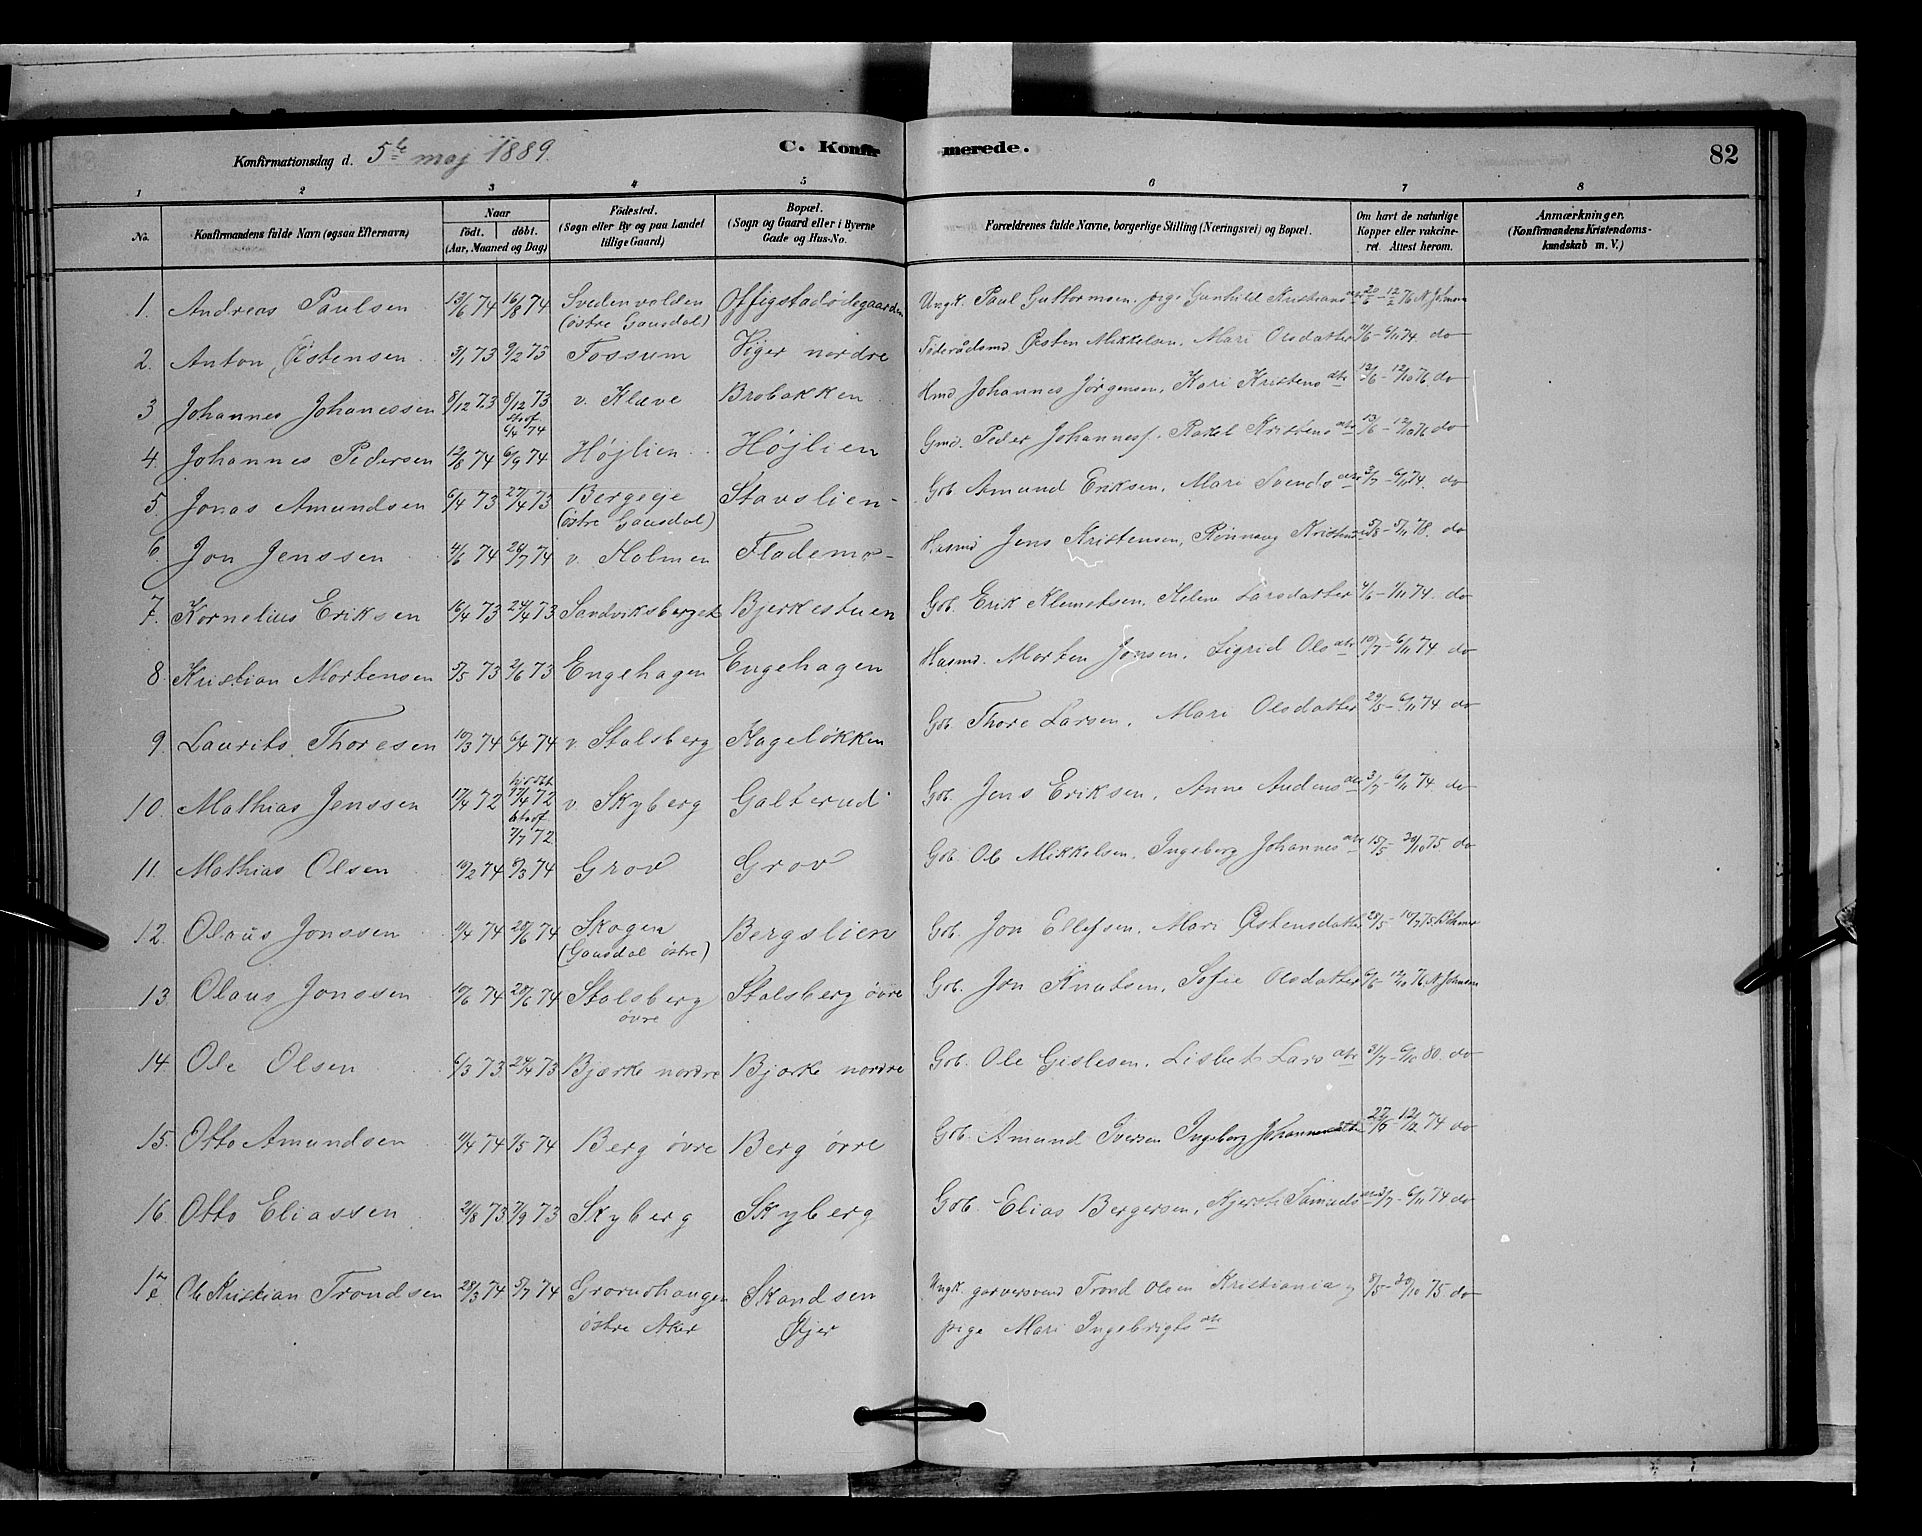 Konfirmationsdag d. 5te maj 1889. C. Konfirmerede. 82
1 2 3 4 5 6 7 8
No. Konfirmandens fulde Navn (ogsaa Efternavn) Naar födt. döbt. (Aar, Maaned og Dag) Födested. (Sogn eller By og paa Landet tillige Gaard) Bopæl. (Sogn og Gaard eller i Byerne Gade og Hus-No. Forældrenes fulde Navne, borgerlige Stilling (Næringsvei) og Bopæl. Om havt de naturlige Kopper eller vakcineret. Attest herom. Anmærkninger. (Konfirmandens Kristendomskundskab m. V.)
1. Andreas Paulsen 13/6 74 16/8 74 Svedenvolden (östre Gausdal) Offigstadödegaarden Ungk. Paul Guttormsen, pige Gunhild Kristians 12/2 76 N. Johnsen
2. Anton Östensen 3/1 73 9/2 73 Fossum Viger nordre Föderådsmd. Östen Mikkelsen, Mari Olsdatter 6/11 74. do
3 Johannes Johanessen 8/12 73 8/12 73 stadf. 6/4 74 v. Klæve Brobakken Hmd Johannes Jörgensen, Kari Kristensdtr 13/6 - 12/10 76 do
4. Johannes Pedersen 12/8 74 6/9 74 Höjlien Höjlien Gmd. Peder Johanness. Rakel Kristensdtr 13/6 - 12/10 76 do
5. Jonas Amundsen 6/4 73 27/4 73 Bergeeje (östre Gausdal) Stavslien Gob. Amund Eriksen, Mari Svendsdtr 3/7 - 6/11 74. do
6. Jon Jenssen 4/6 74 26/7 74 v. Holmen Flademo Husmd Jens Kristensen, Rönnaug 5/8 - 5/11 78. do
7. Kornelius Eriksen 16/4 73 24/4 73 Sandviksberget Bjerkestuen Gob. Erik Klemetsen, Helene Larsdatter 74. do
8. Kristian Mortensen 5/5 73 2/6 73 Engehagen Engehagen Husmd. Morten Jonsen, Sigrid Olsdtr 10/7 - 6/11 74 do
9. Laurits Thoresen 10/3 74 6/4 74 v. Stalsberg Hagelökken Gob. Thore Larsen, Mari Olsdatter 29/5 - 6/11 74 do
10. Mathias Jenssen 17/4 72 17/4 72 stadf. 7/7 72 v. Skyberg Galterud Gob. Jens Eriksen, Anne Audensdtr 3/7 - 6/11 74. do
11. Mathias Olsen 10/2 74 74 Grov Grov Gob. Ole Mikkelsen, Ingeborg Johannesdtr 15/5 - 30/10 75 do
12. Olaus Jonssen 74 28/6 74 Skogen (Gausdal östre) Bergslien Gob. Jon Ellefsen, Mari Östensdatter 28/5 75
13. Olaus Jonssen 10/6 74 28/6 74 Stalsberg övre Stalsberg övre Gob. Jon Knutsen, Sofie Olsdatter 12/10 76 N. Johnsen
14. Ole Olsen 6/3 73 24/4 73 Bjærke nordre Bjærke nordre Gob. Ole Gislesen, Lisbet Larsdtr 31/7 - 6/10 80. do
15. Otto Amundsen 74 74 Berg övre Berg övre Gob. Amund Iversen Ingeborg Johannesdtr 74 do
16. Otto Eliassen 21/8 73 7/9 73 Skyberg Skyberg Gob. Elias Bergersen, Kjersti 3/7 - 6/11 74 do
17. Ole Kristian Trondsen 28/3 74 5/7 74 Grorudhaugen östre Aker Skandsen Öjer Ungk. garversvend Trond Olsen Kristiania og 8/5 - 30/10 75. do
pige Mari Ingebrigtsdtr